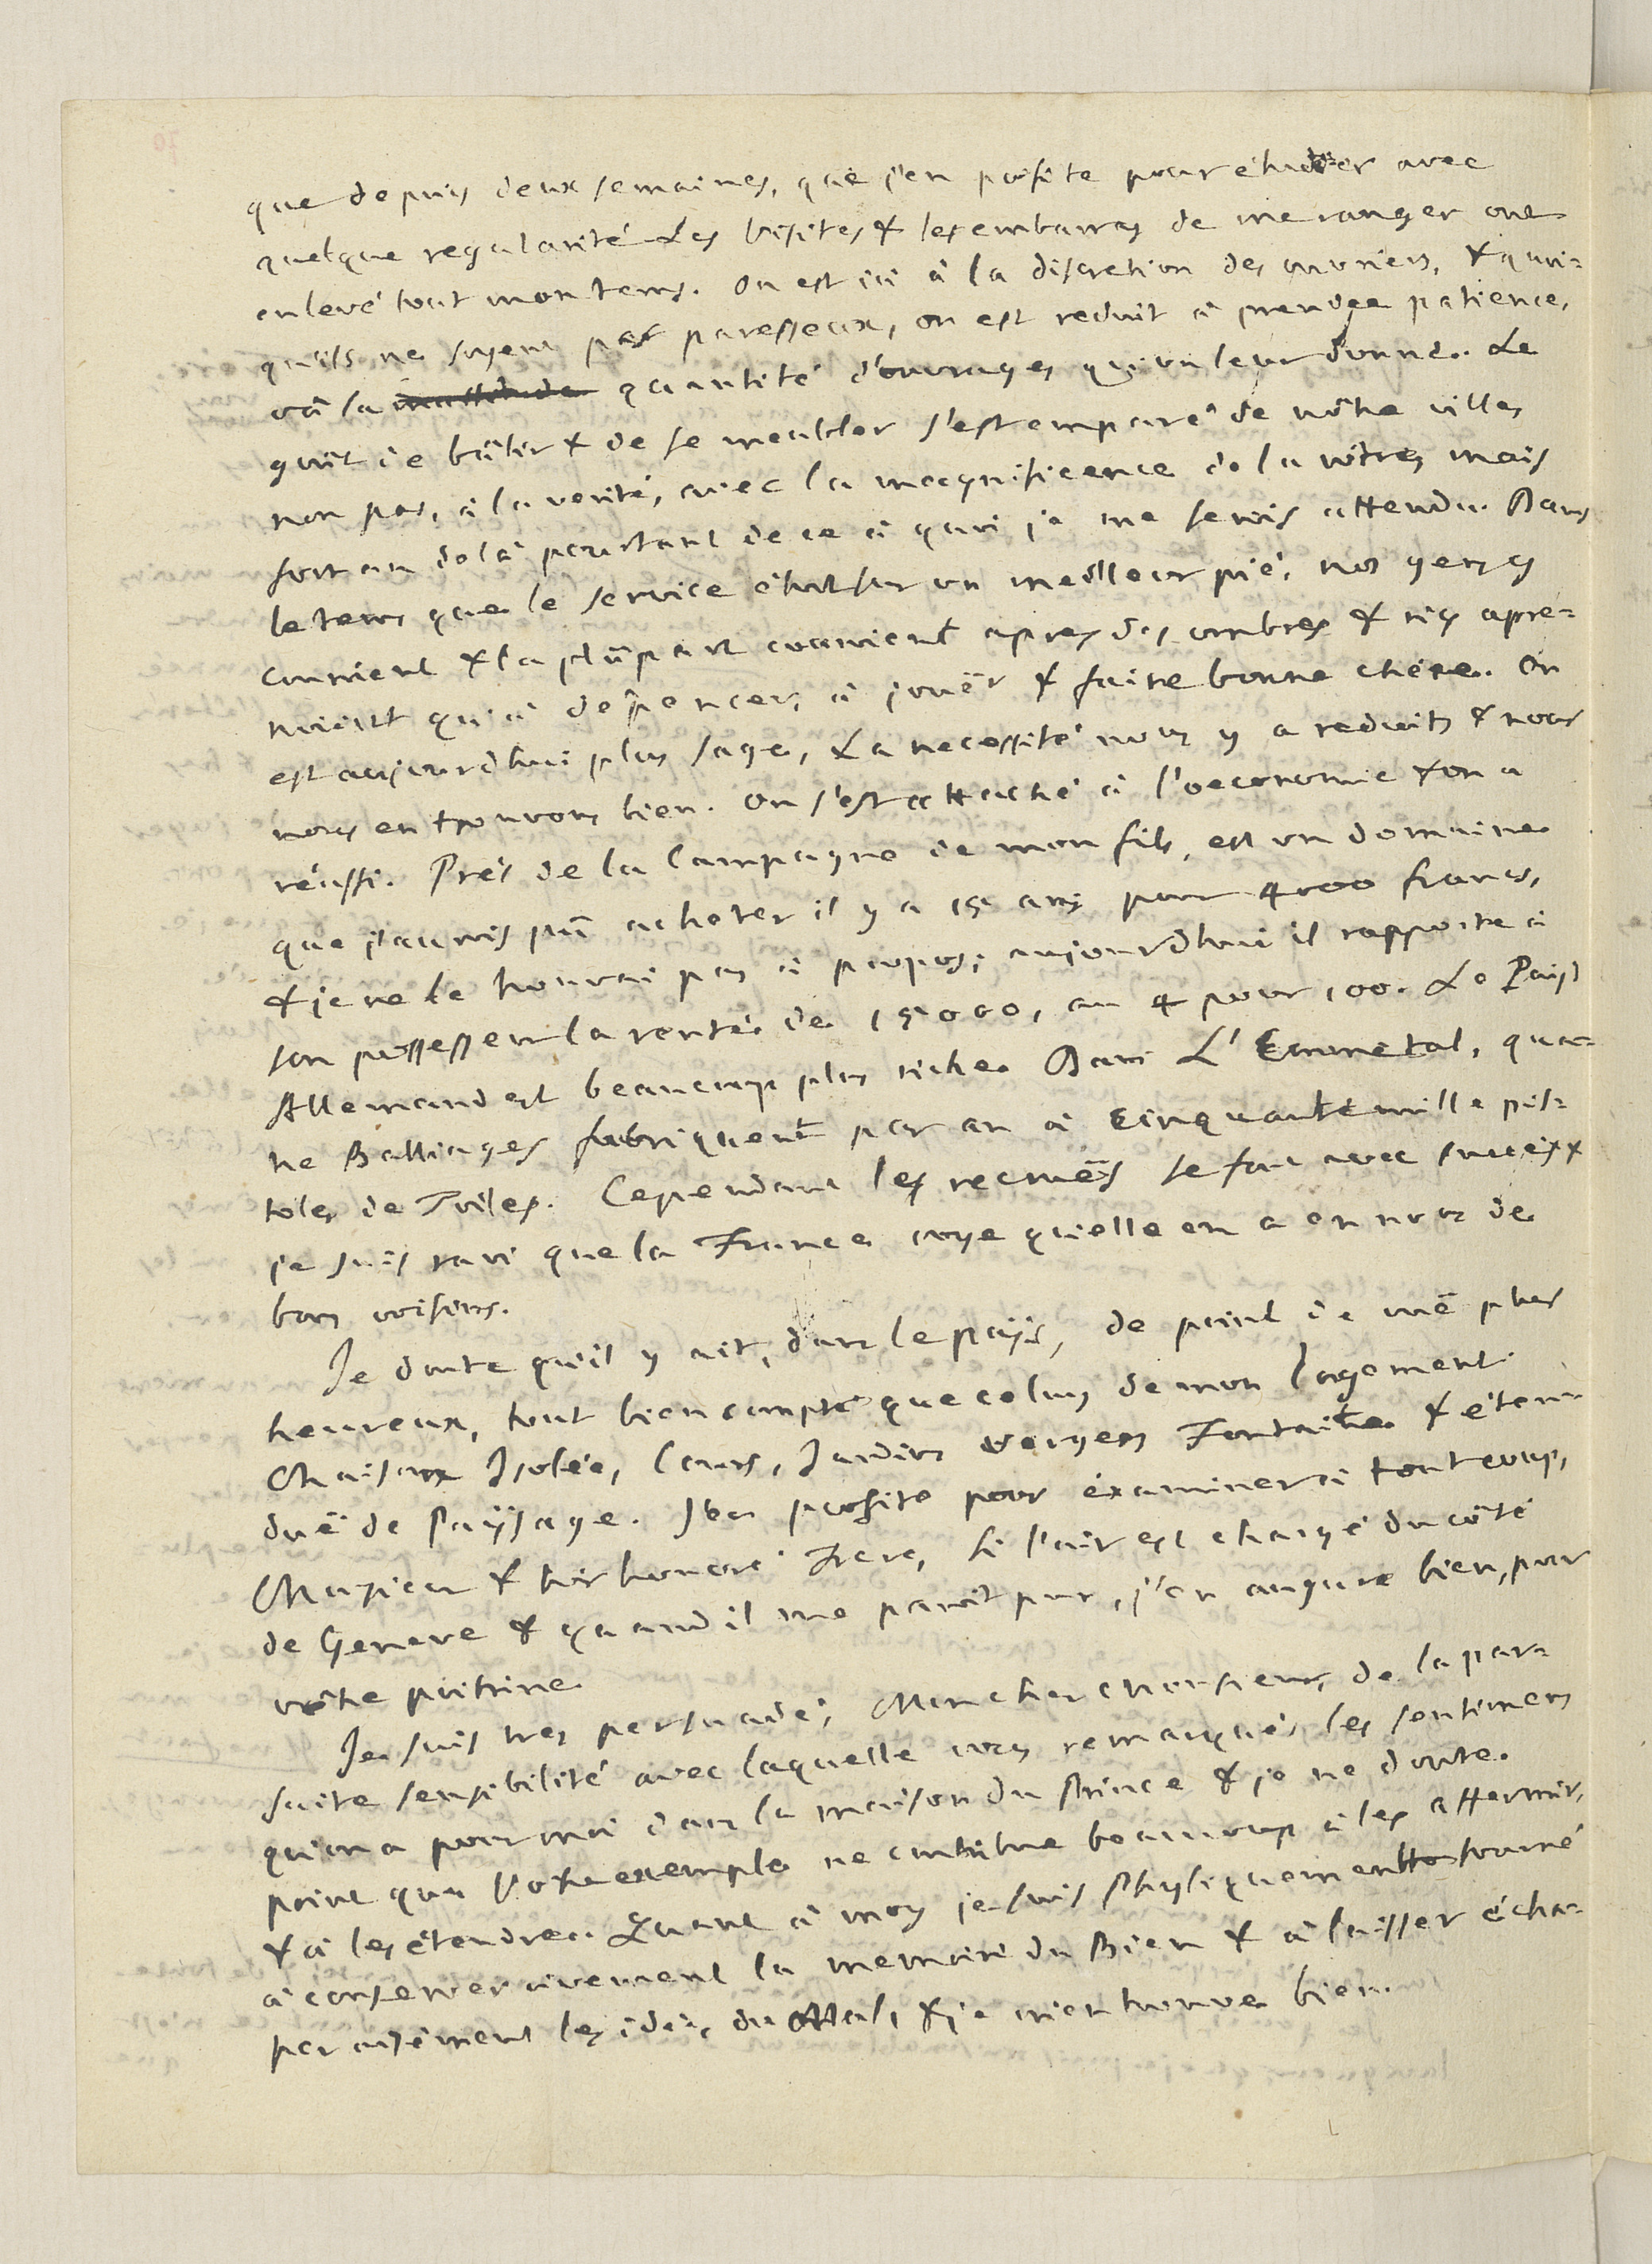 que depuis deux semaines, que j'en profite pour étudier avec
quelque regularité. Les Visites & les embarras de me ranger ont
enlevé tout mon tems. On est ici à la discretion des ouvriers, & quoi=
qu'ils ne soyent pas paresseux, on est reduit à prendre patience,
vû la multitude quantité d'ouvrages qu'on leur donne. Le
goût de bâtir & de se meubler s'est emparé de nôtre ville,
non pas, à la verité, avec la magnificence de la vôtre, mais
fort au delà pourtant de ce à quoi je me serois attendu. Dans
le tems que le service étoit sur un meilleur pié, nos gens y
couroient & la plûpart couroient apres des ombres & n'y apre=
noient qu'à dépencer, à jouër & faire bonne chére. On
est aujourdhui plus sage, La necessité nous y a reduits & nous
nous en trouvons bien. On s'est attaché à l'oeconomie & on a
réussi. Prés de la Campagne de mon fils, est un domaine
que j'aurois pû acheter il y a 15 ans pour 4000 francs,
& je ne le trouvai pas à propos; aujourdhui il rapporte à
son possesseur la rente de 15000, au 4 pour 100. Le Païs
Allemand est beaucoup plus riche. Dans L'Emmetal, qua=
tre Balliages fabriquent par an à Cinquante mille pis=
toles de Toiles. Cependant les recruës se font avec succès &
je suis ravi que la France voye qu'elle en a en nous de
bons voisins.
Je doute qu'il y ait, dans le païs, de point de vuë plus
heureux, tout bien compté que celuy de mon logement.
Maison Isolée, Cours, Jardins vergers Fontaine & éten=
duë de Païsage. J'en profite pour éxaminer à tout coup,
Monsieur & tres honoré Frere, si l'air est chargé du côté
de Geneve & quand il me paroît pur, j'en augure bien, pour
vôtre poitrine.
Je suis tres persuadé, Mon cher Monsieur, de la par=
faite sensibilité avec laquelle vous remarqués les sentimens
qu'on a pour moi dans la maison du Prince & je ne doute
point que Votre exemple ne contribue beaucoup à les affermir,
& à les étendre. Quant à moy je suis Physiquement tourné
à conserver vivement la memoire du Bien & à laisser écha=
per aisément les idées du Mal, & je m'en trouve bien.